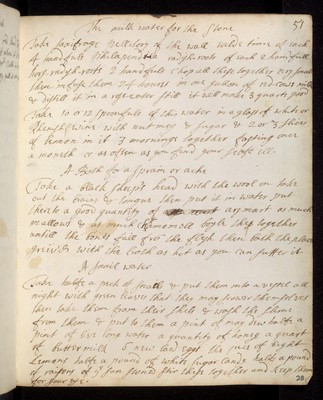 51
The milk water for the stone
Take saxifrage pellitory of the wall wilde time of each
4 handfuls philapendula radyshroots of each 2 handfulls
hors radyshroots 2 handfulls Chop all these together very small
then infuse them 24 houers in one gallon of red cows milk
& distill it in a rose water still it will make 3 quarts good
Take 10 or 12 spoonfuls of this water in a glass of white or
Rhenish wine with nutmeg & sugar & 2 or 3 slices
of lemon in it 3 mornings together fasting once
a moneth or as often as you find your selfe ill
A Bath for a sprain or ache
Take a black sheeps head with the wool on take
out the brains & tongue then put it in water put
thereto a good quantity of arsmart as much
mallows & as much Camomell boyle these together
untill the bones fall from the flesh then bath the place
grieved with the broth as hot as you can suffer it
A snail water
Take halfe a peck of snails & put them into a vessel all
night with green leaves that they may scower themselves
then take them from their shels & wash the slime
from them & put to them a pint of may dew halfe a
pint of live hony water a quantity of honey a quart
of butter milk 6 new laid eggs the juice of eight
Lemons halfe a pound of white sugar candy halfe a pound
of raisons of ye sun stoned stir these together and keep them
28